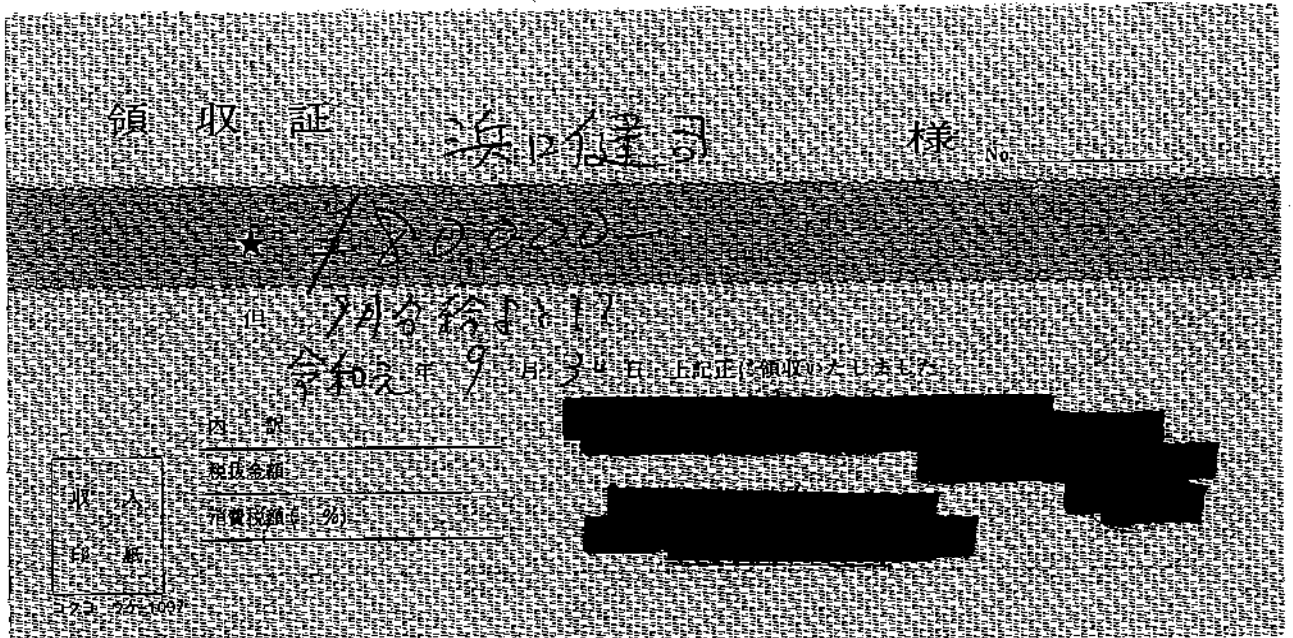 領収証 浜口健司 様 No.
★ ¥80,000-
但 9月分給与として
令和元年 9月30日 上記正に領収いたしました
内訳
税抜金額
消費税額( %)
収入
印紙
コクヨ ウケ-1097